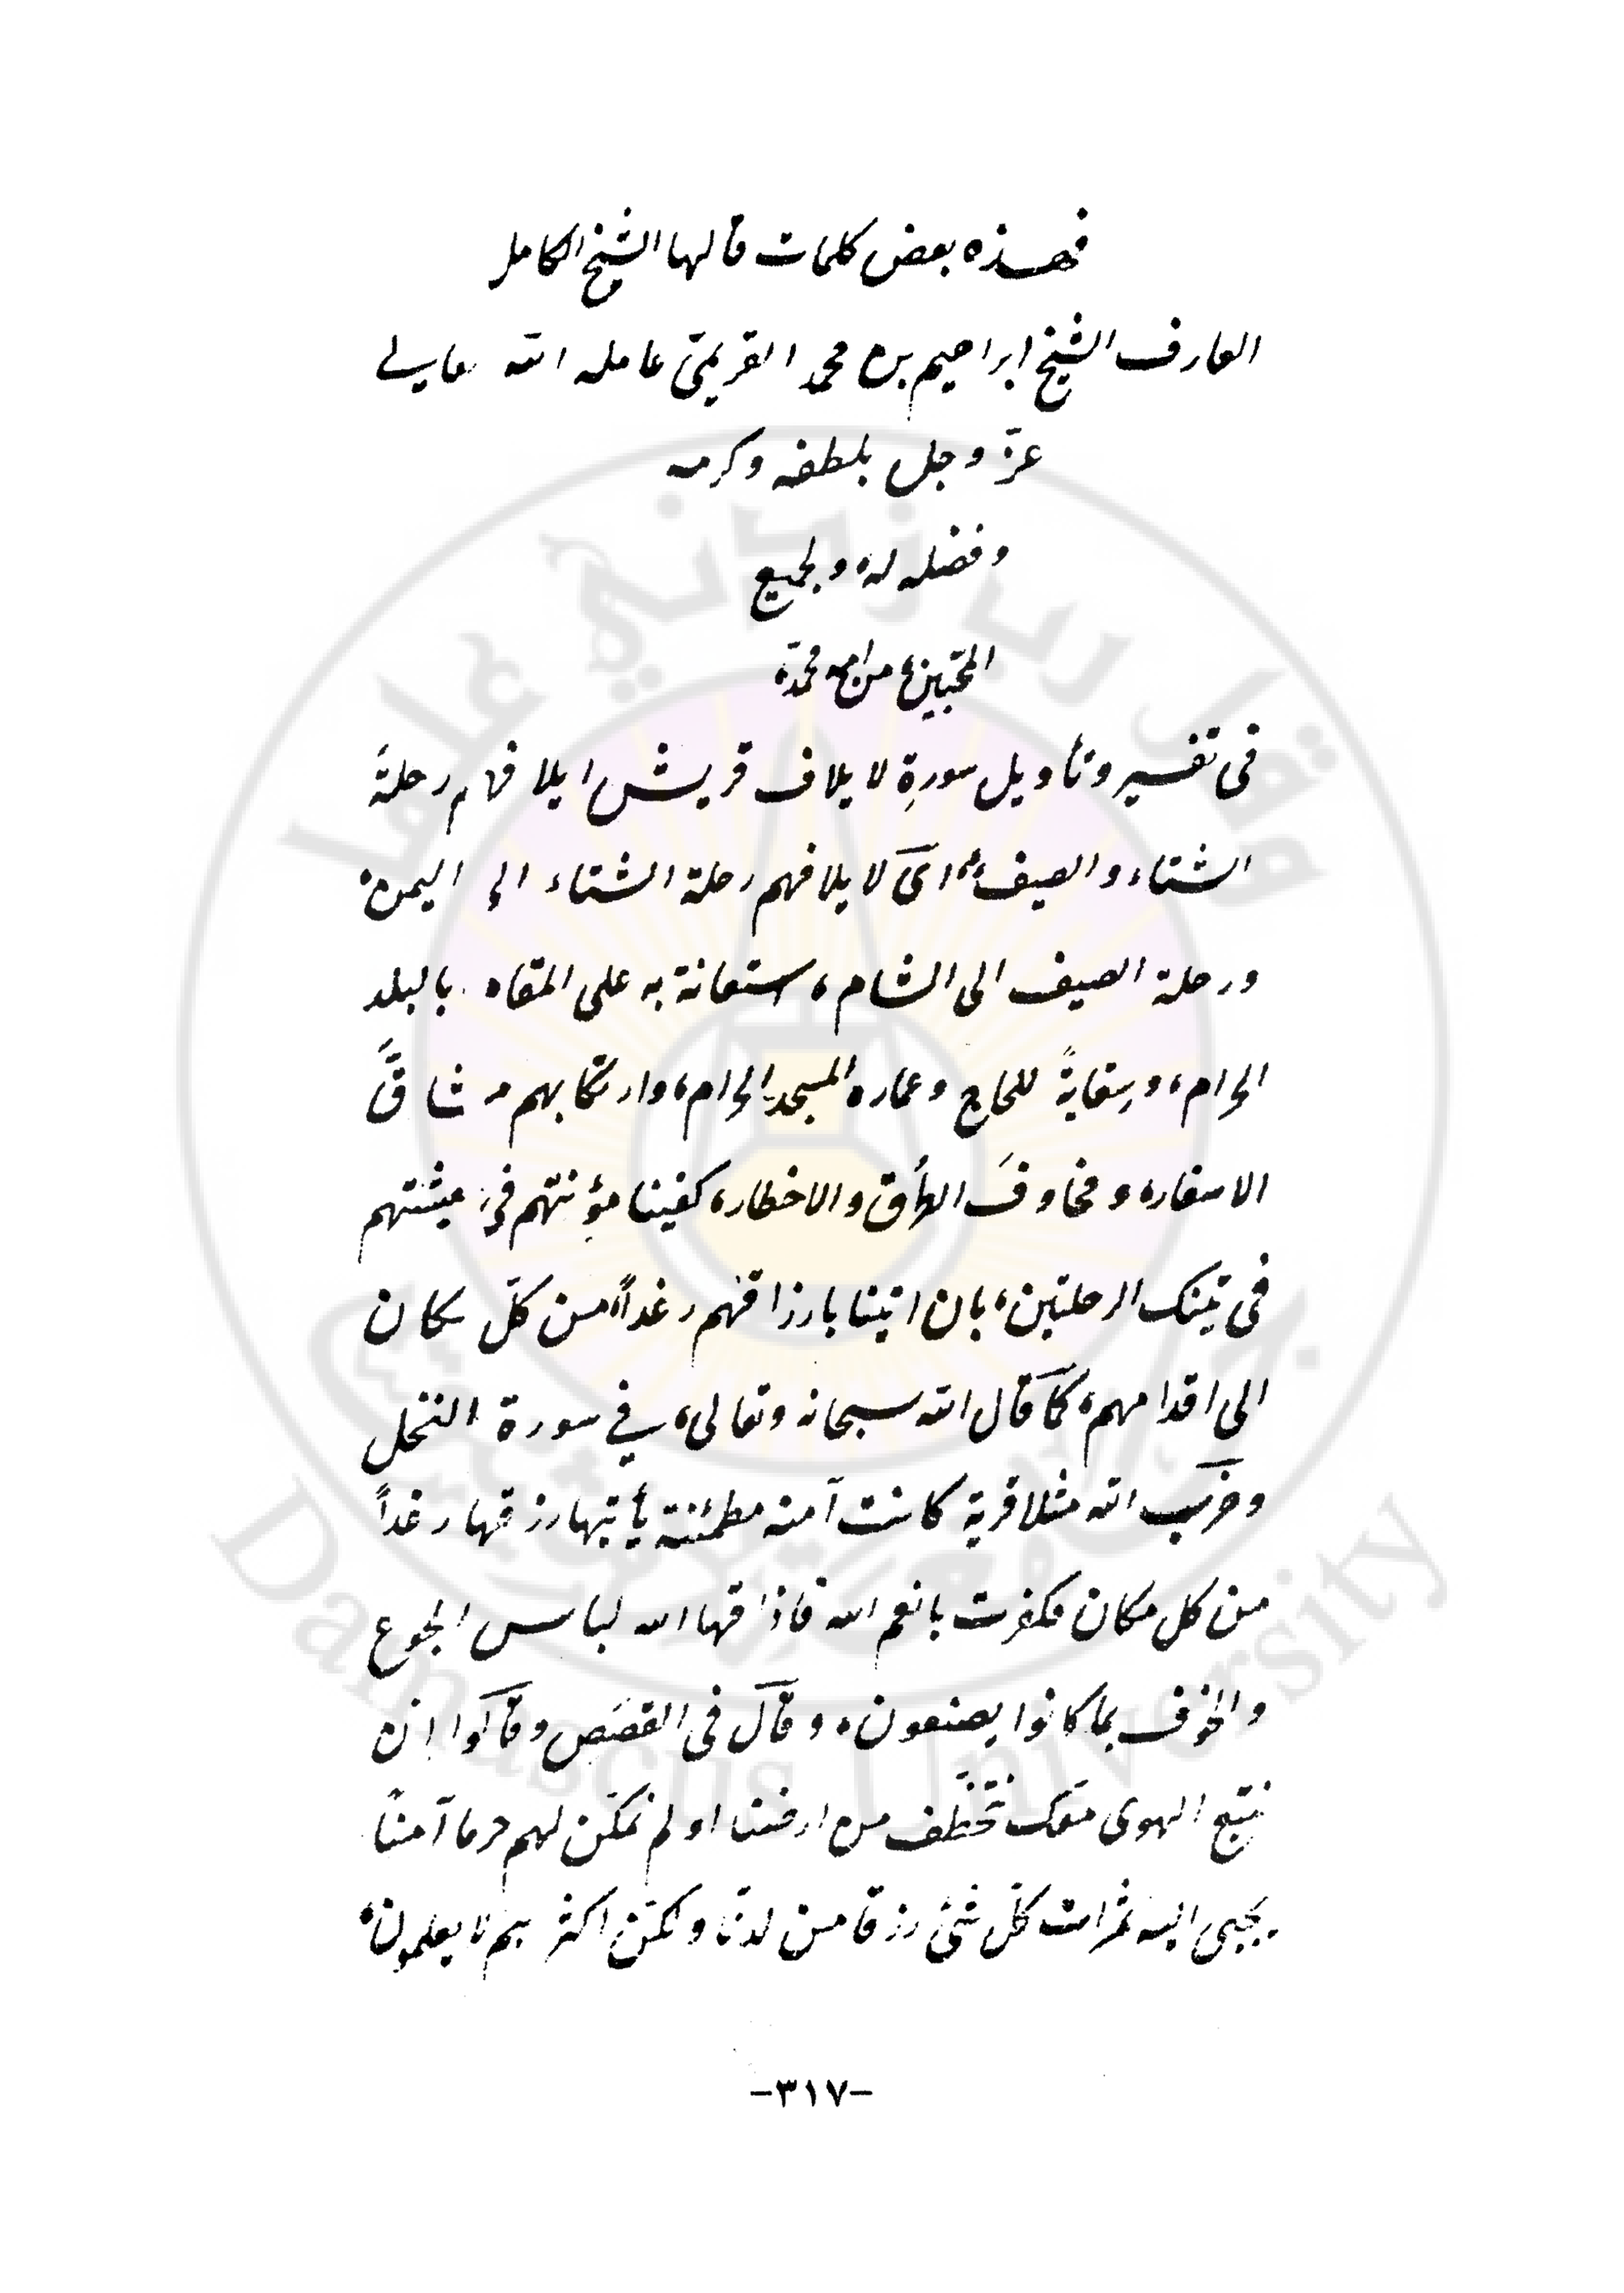 فهذه بعض كلمات قالها الشيخ الكامل
العارف الشيخ ابراهيم بن محمد القريمىّ عامله الله
عزّ وجل بلطفه وكرمه
وفضله له ولجميع
المحبّين، من امة محمد،
فى تفسير وتأويل سورةِ لايلاف قريش ايلافهم رحلةَ
الشتاء والصيف، اى لايلافهم رحلة الشتاء الى اليمن،
ورحلة الصيف الى الشام، استعانة به على المقام بالبلد
الحرام، وسِقايةً للحاج وعماره المسجدِ الحرام، وارتكابهم مشاقَّ
الاسفار، ومخاوفَ والاخطار، كفينا مؤنتهم فى عيشتهم
فى تينك الرحلتين، بان اتينا بارزاقهم رغداً من كلّ مكان
الى اقدامهم، كما قال الله سبحانه وتعالى، في سورة النخل
وضرب الله مثلا قرية كانت آمنه مطمئنة يأتيها رزقها رغداً
من كل مكان فكفرت بانعم الله فاذاقها الله لباس الجوع
والخوف بما كانوا يصنعون، وقال فى القصَص وقالوا ان
نتبع الهوى معك نُتَخَطَّف من ارضنا اولم نمكّن لهم حرما آمناً
يجبى اليه ثمرات كلّ شئ رزقا من لدنّا ولكنّ اكثرهم لا يعلمون،
-٣١٧-
وقل رب زدني علما
جامعة دمشق
Damascus University